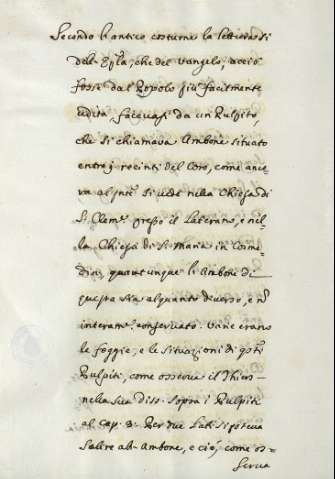 Secondo l'antico costume la lettura sì
dell'Epla, che del Vangelo, acciò
fosse dal Popolo più facilmente
udita, facevasi da un Pulpito,
che si chiamava Ambone situato
entro i recinti del Coro, come anco-
ra al pnte si vede nella Chiesa di
S. Clemte presso il Laterano, e nel-
la Chiesa di S. Maria in Cosme-
din, quantunque l'Ambone di
questa sia alquanto diverso, e nō
interamte conservato. Varie erano
le foggie, e le situazioni di qsti
Pulpiti, come osserva il Thiers
nella sua Diss. sopra i Pulpiti
al Cap. 3. Per due Lati si poteva
Salire all'Ambone, e ciò, come os-
serva